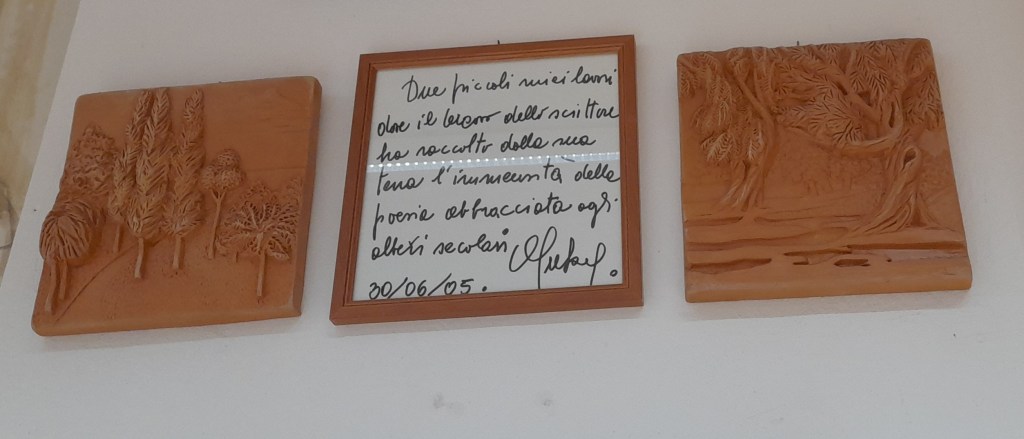 Due piccoli miei lavori
dove il braccio dello scrittore
ha raccolto dalla sua
terra l'immensità della
poesia abbracciata agli
alberi secolari
30/06/05.